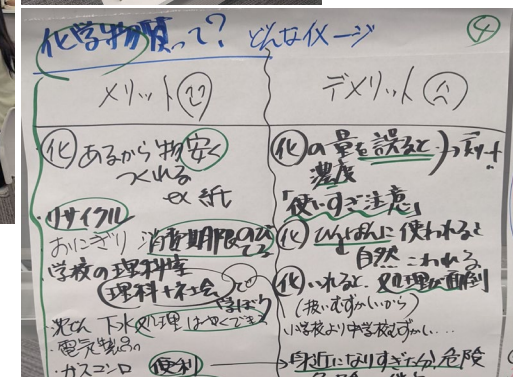 化学物質って? どんなイメージ
4
メリット
デメリット
化 あるから物安く
つくれる
ex 紙
・リサイクル
おにぎり 消費期限のびてる
学校の理科室
理科+社会 で
学ぼう
下水処理 はやくできる
・電気製品
・ガスコンロ 便利
化 の量を誤ると
濃度
「使いすぎ注意」
化 ひんぱんに使われると
自然 こわれる
化 いれると、処理が面倒
(扱いむずかしいから)
小学校より中学校むずかしい…
身近になりすぎた分危険